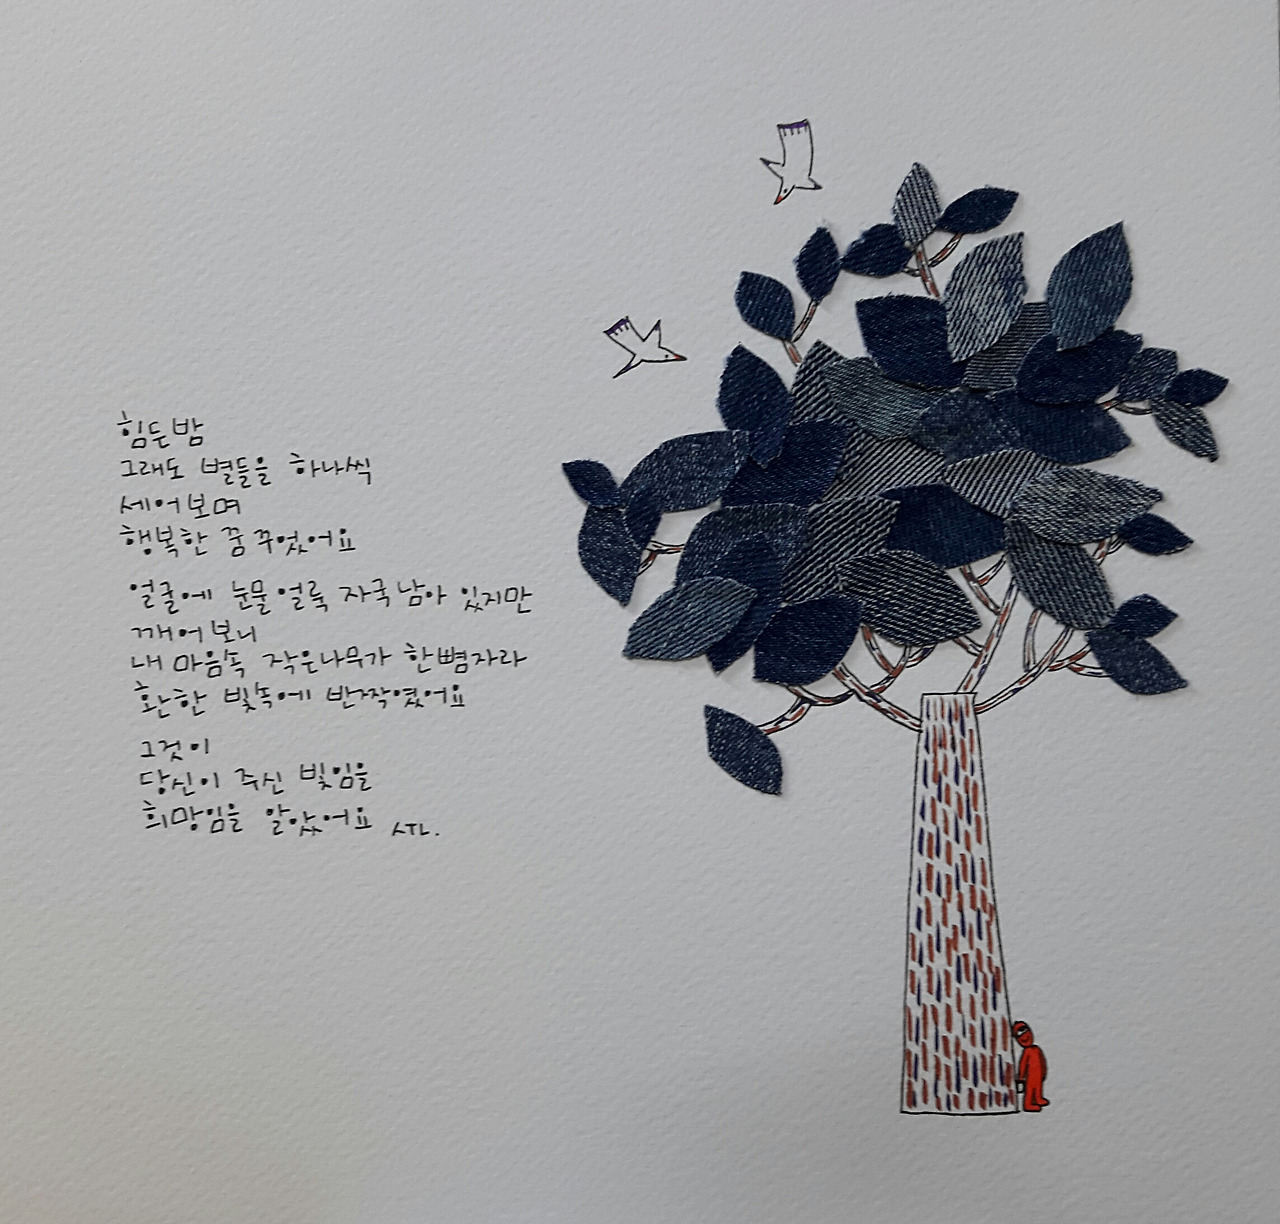 힘든밤
그래도 별들을 하나씩
세어보며
행복한 꿈꾸었어요
얼굴에 눈물얼룩 자국남아 있지만
깨어보니
내 마음속 작은나무가 한뼘자라
환한 빛속에 반짝였어요
그것이
당신이 주신 빛임을
희망임을 알았어요 STL.